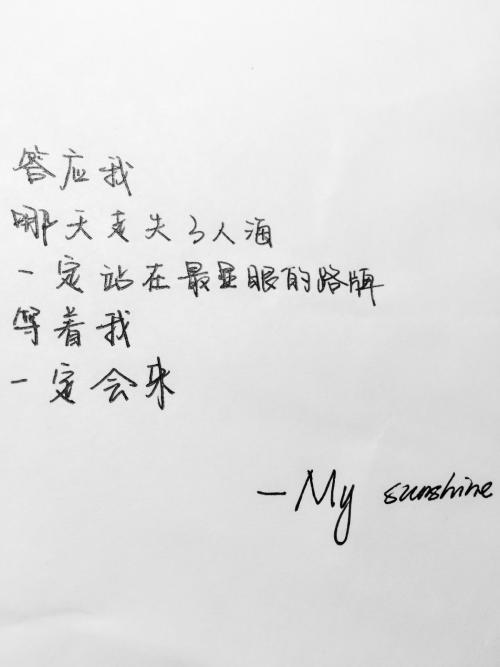 答应我
哪天走失了人海
一定站在最显眼的路牌
等着我
一定会来
—My sunshine